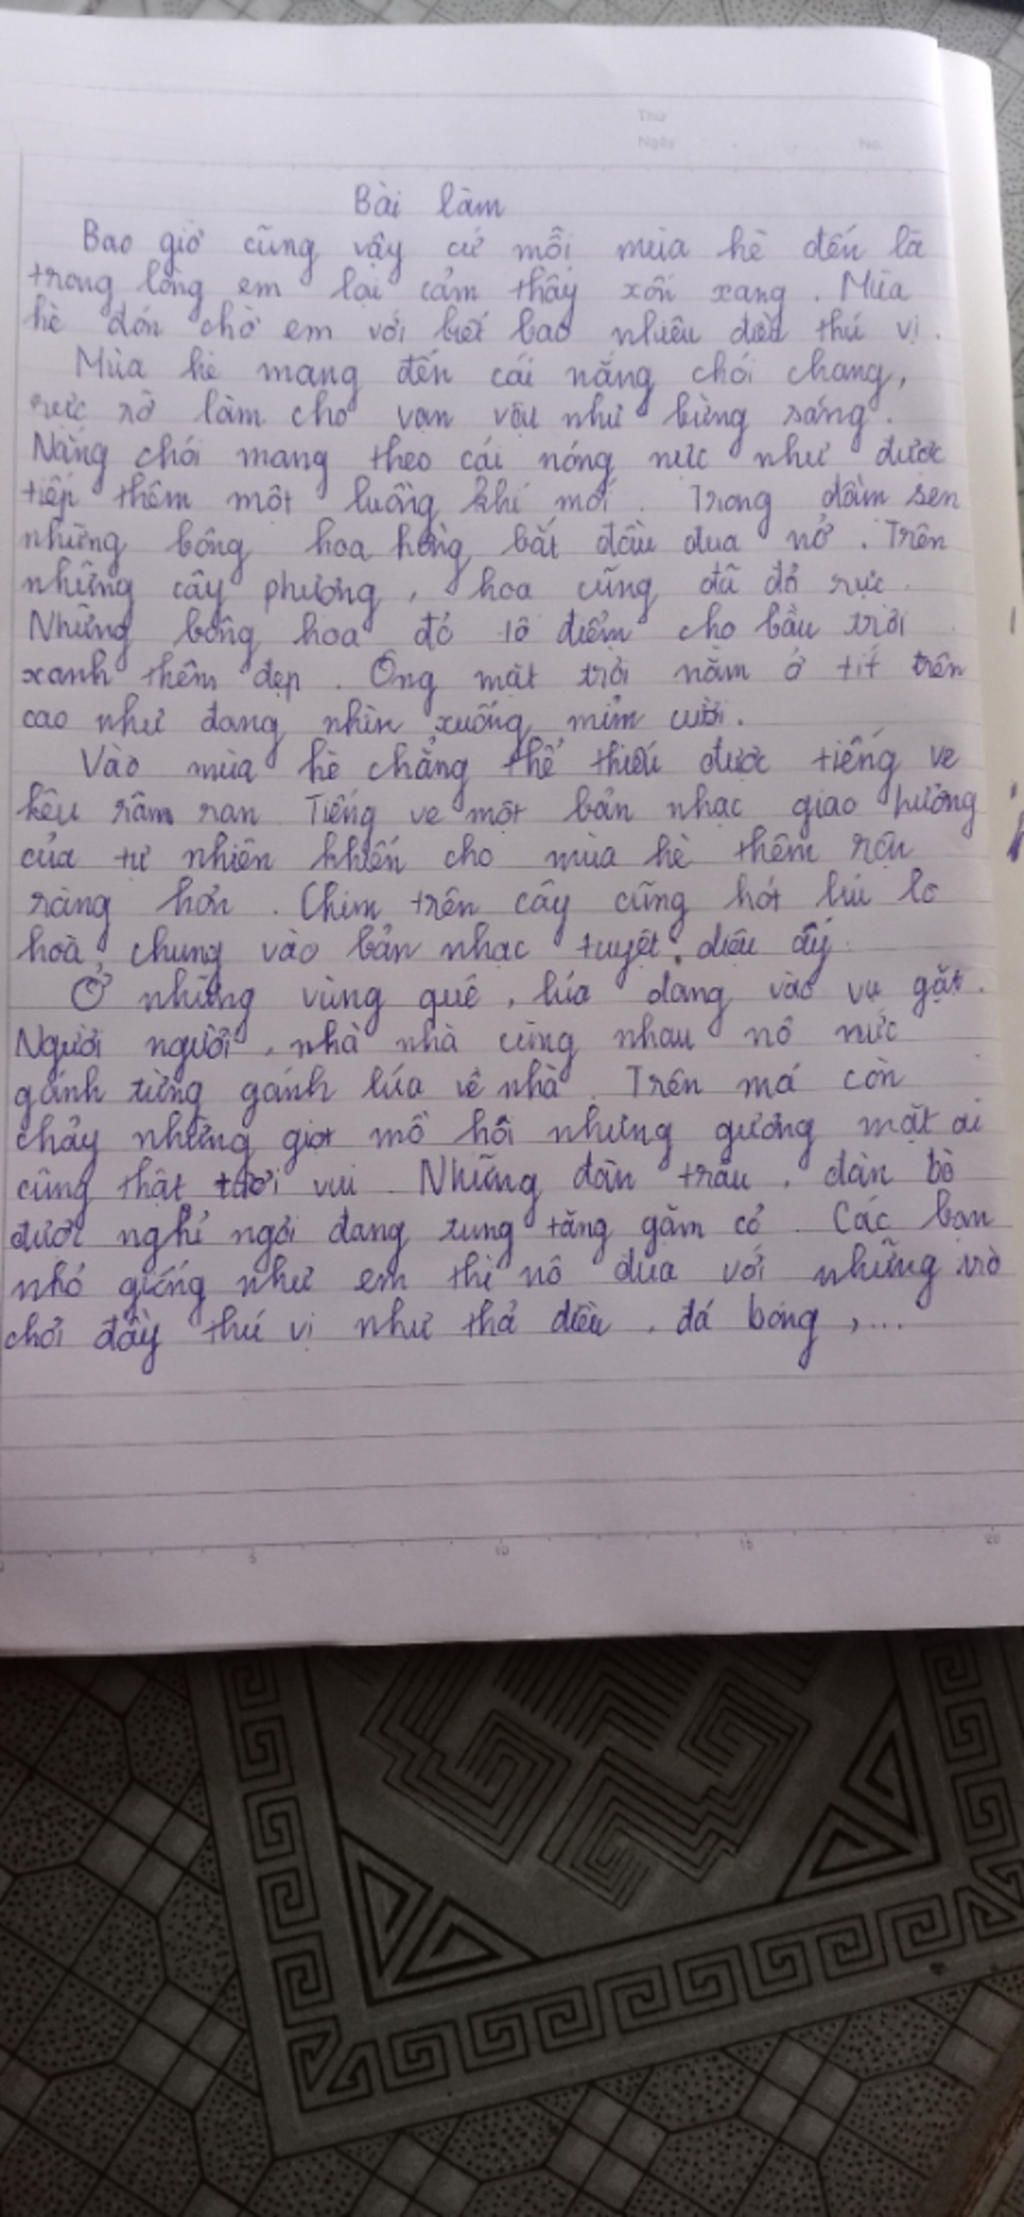 Thứ
Ngày No.
Bài làm
Bao giờ cũng vậy cứ mỗi mùa hè đến là
trong lòng em lại cảm thấy xốn xang. Mùa
hè đón chờ em với biết bao nhiêu điều thú vị.
Mùa hè mang đến cái nắng chói chang,
rực rỡ làm cho vạn vật như bừng sáng.
Nắng chói mang theo cái nóng nực như được
tiếp thêm một luồng khí mới. Trong đầm sen
những bông hoa hồng bắt đầu đua nở. Trên
những cây phượng, hoa cũng đã đỏ rực.
Những bông hoa đó tô điểm cho bầu trời
xanh thêm đẹp. Ông mặt trời nằm ở tít trên
cao như đang nhìn xuống mỉm cười.
Vào mùa hè chẳng thể thiếu được tiếng ve
kêu râm ran. Tiếng ve một bản nhạc giao hưởng
của tự nhiên khiến cho mùa hè thêm rộn
ràng hơn. Chim trên cây cũng hót líu lo
hoà chung vào bản nhạc tuyệt diệu ấy.
Ở những vùng quê, lúa đang vào vụ gặt.
Người người, nhà nhà cùng nhau nô nức
gánh từng gánh lúa về nhà. Trên má còn
chảy những giọt mồ hôi nhưng gương mặt ai
cũng thật tươi vui. Những đàn trâu, đàn bò
được nghỉ ngơi đang tung tăng gặm cỏ. Các bạn
nhỏ giống như em thì nô đùa với những trò
chơi đầy thú vị như thả diều, đá bóng,...
5 10 15 20